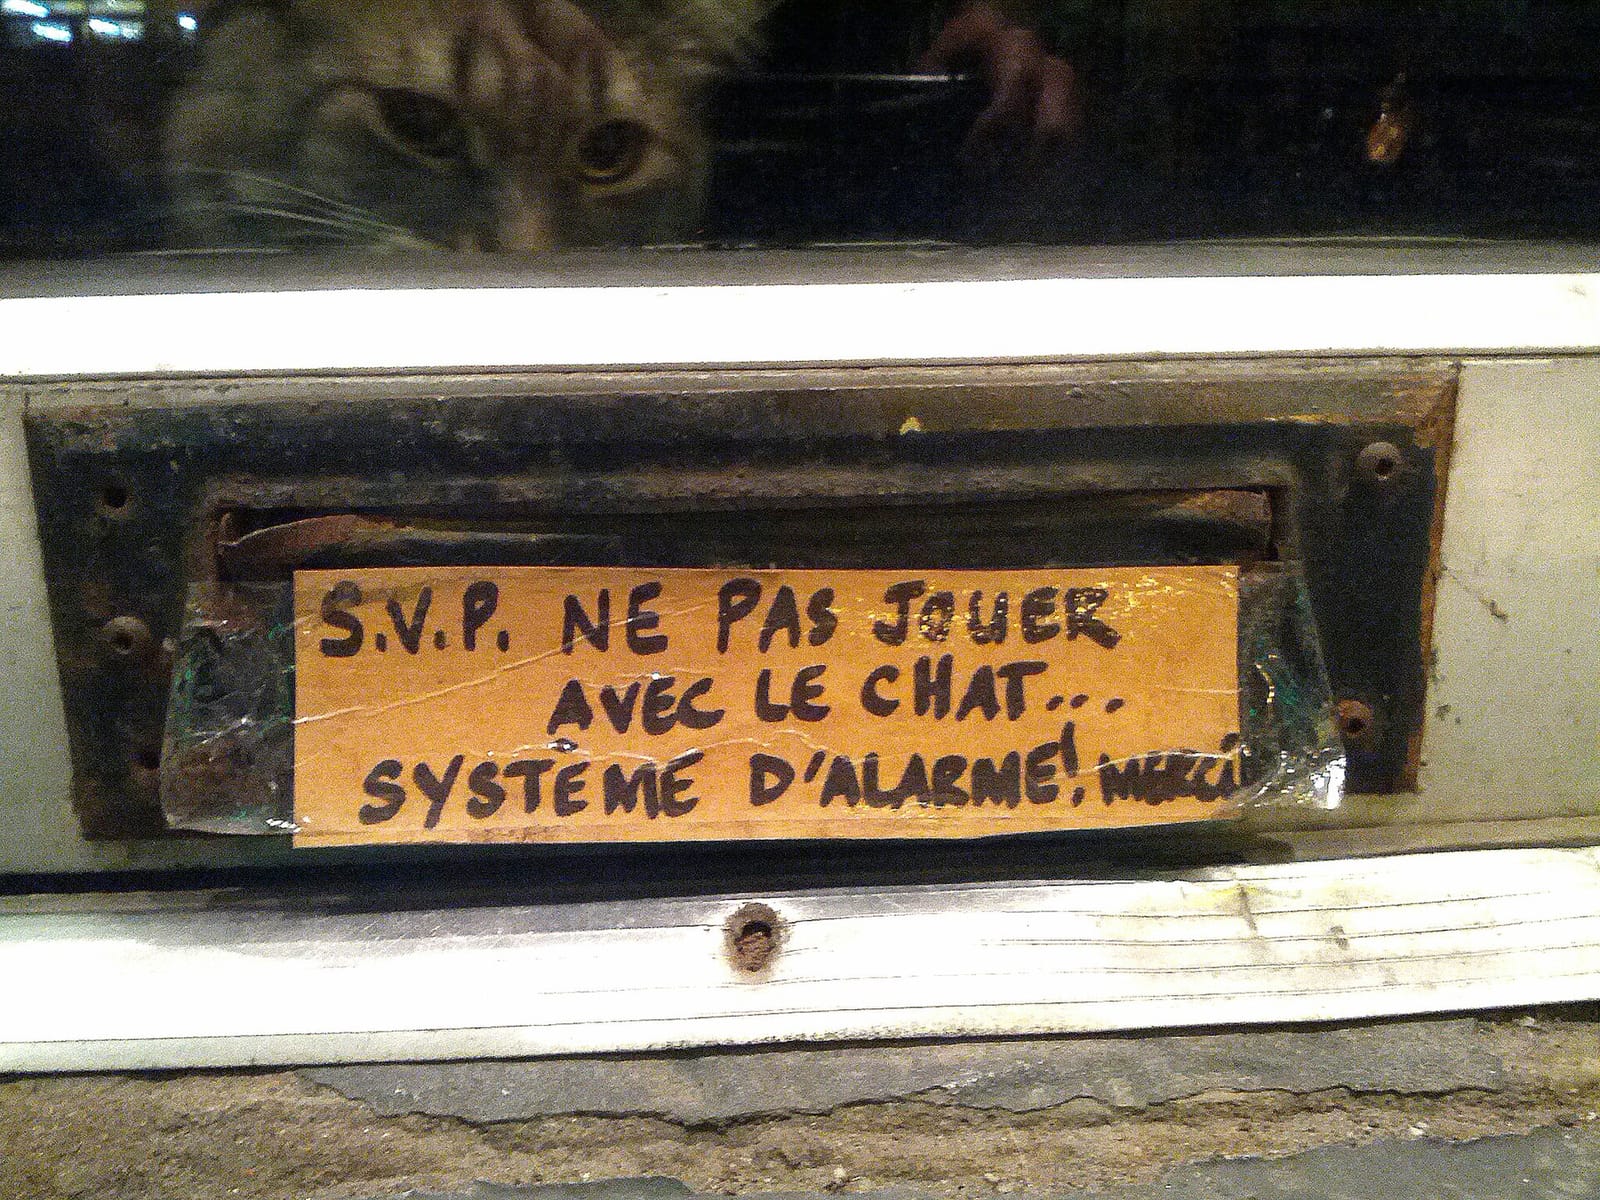 S.V.P. NE PAS JOUER
AVEC LE CHAT...
SYSTÈME D'ALARME! MERCI